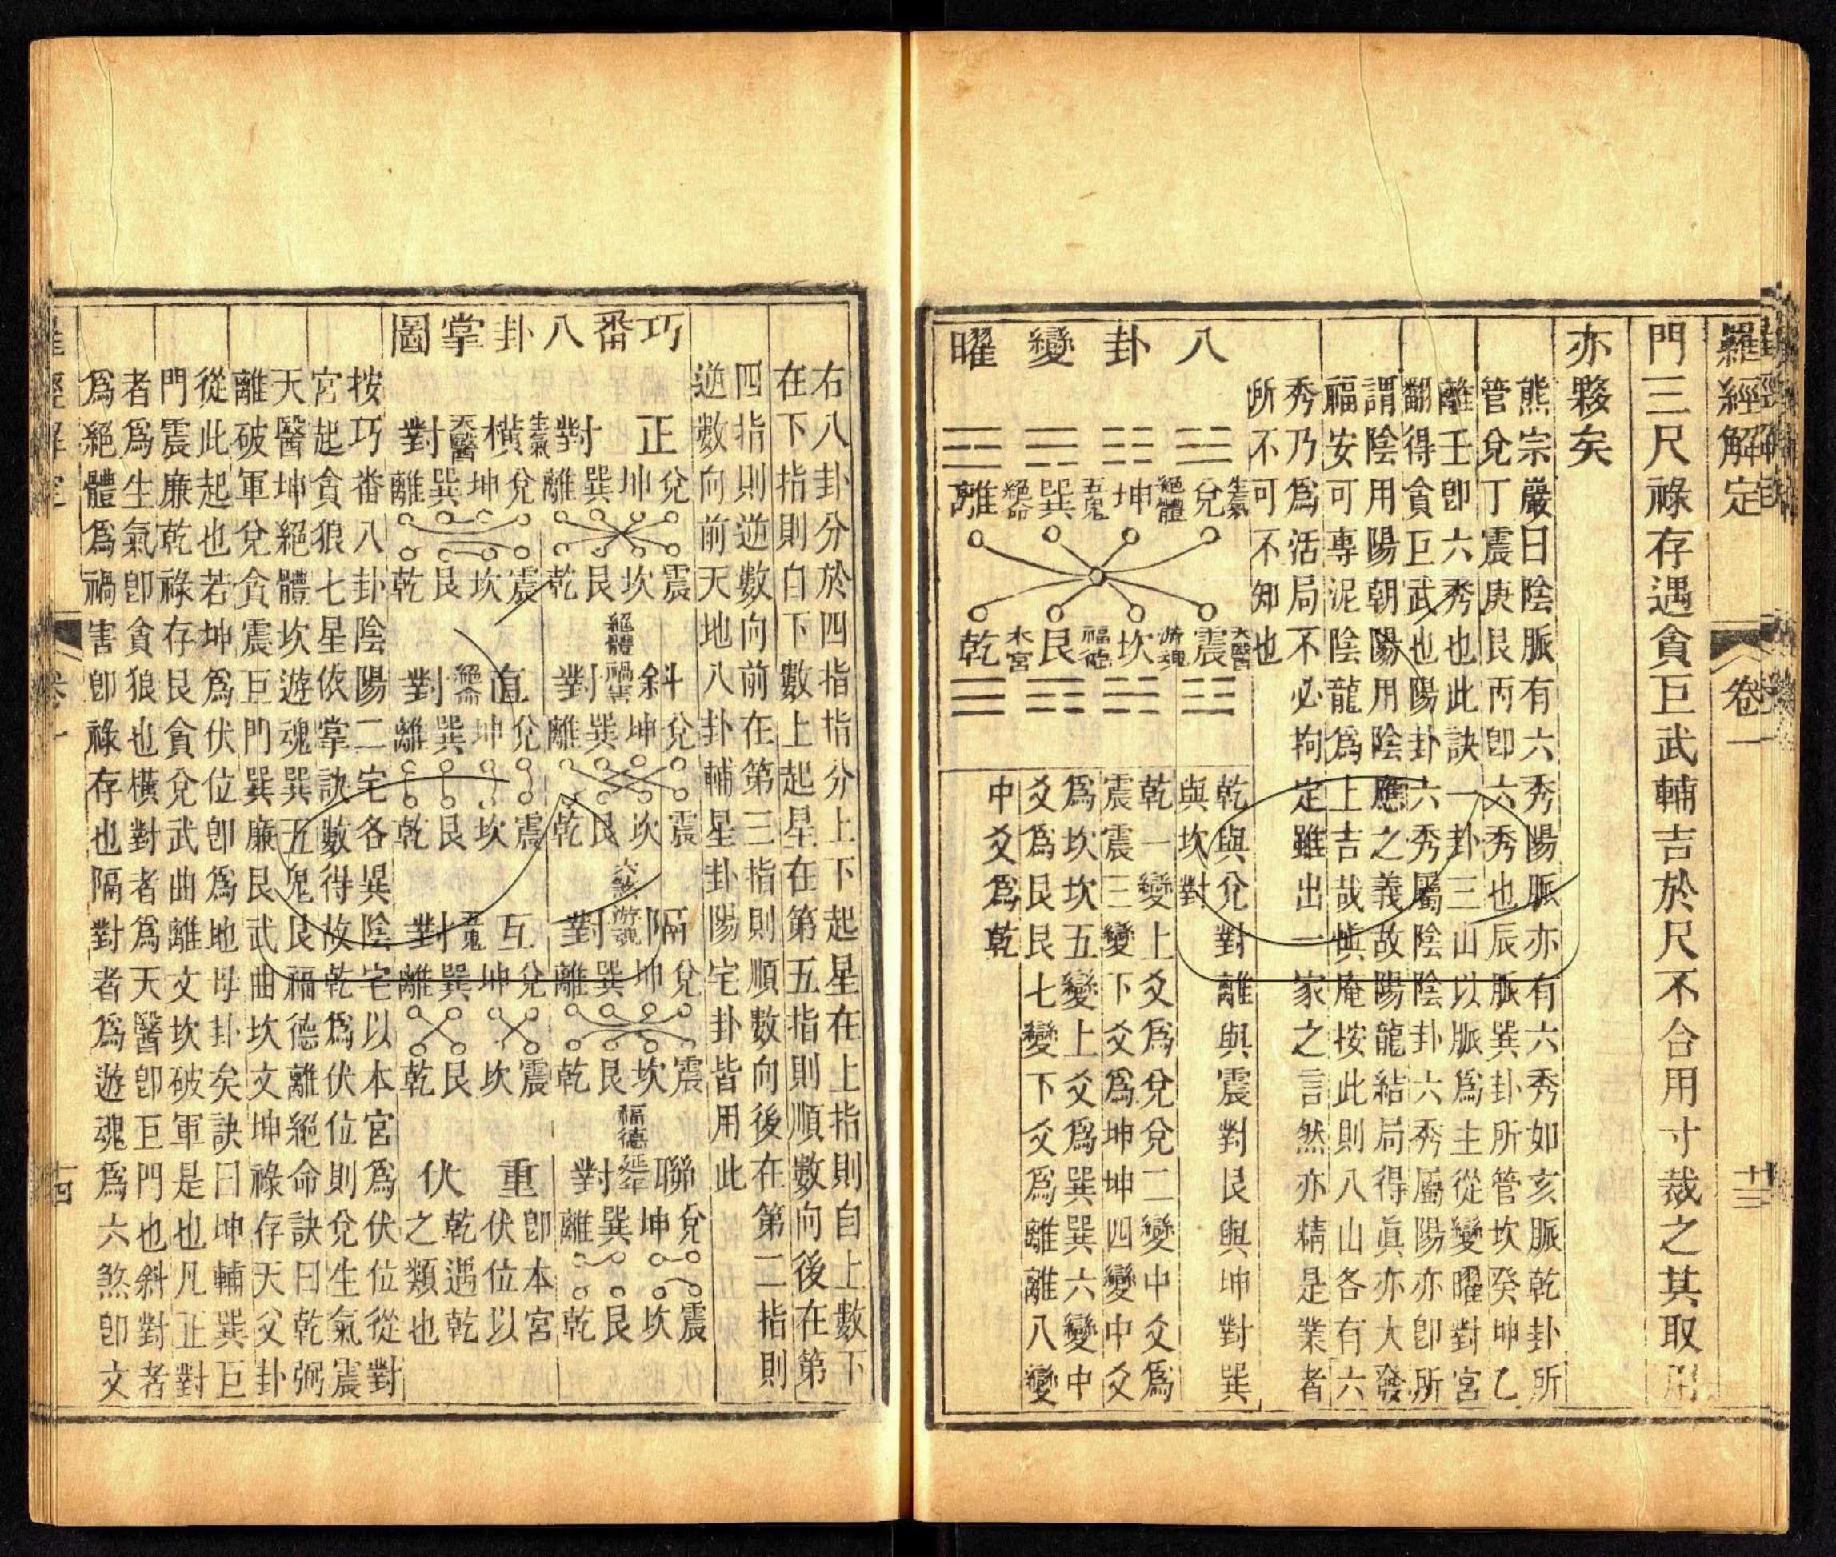 羅經解定
卷一
十三
門三尺祿存遇貪巨武輔吉於尺不合用寸裁之其取用
亦夥矣
熊宗嚴曰陰脈有六秀陽脈亦有六秀如亥脈乾卦所
管兌丁震庚艮丙卽六秀也辰脈巽卦所管坎癸坤乙
離壬卽六秀也此訣一卦三山以脈爲主從變曜對宮
翻得貪巨武也陽卦六秀屬陰陰卦六秀屬陽亦卽所
謂陰用陽朝陽用陰應之義故陽龍結局得眞亦大發
福安可專泥陰龍爲上吉哉愼庵按此則八山各有六
秀乃爲活局不必拘定雖出一家之言然亦精是業者
所不可不知也
八卦變曜
兌生氣 坤絕體 巽五鬼 離絕命
震天醫 坎遊魂 艮福德 乾本宮
乾與兌對離與震對艮與坤對巽
與坎對
乾一變上爻爲兌兌二變中爻爲
震震三變下爻爲坤坤四變中爻
爲坎坎五變上爻爲巽巽六變中
爻爲艮艮七變下爻爲離離八變
中爻爲乾
右八卦分於四指指分上下起星在上指則自上數下
在下指則自下數上起星在第五指則順數向後在第
四指則逆數向前在第三指則順數向後在第二指則
逆數向前天地八卦輔星卦陽宅卦皆用此
巧番八卦掌圖
正對生氣
兌坤巽離
震坎艮乾
斜對絕體禍害
兌坤巽離
震坎艮乾
隔對六煞遊魂
兌坤巽離
震坎艮乾
聯對福德延年
兌坤巽離
震坎艮乾
橫對天醫
兌坤巽離
震坎艮乾
直對絕命
兌坤巽離
震坎艮乾
互對五鬼
兌坤巽離
震坎艮乾
重伏
卽本宮
伏位以
乾遇乾
之類也
按巧番八卦陰陽二宅各異陰宅以本宮爲伏位從對
宮起貪狼七星依掌訣數得故乾爲伏位則兌生氣震
天醫坤絕體坎遊魂巽五鬼艮福德離絕命訣曰乾弼
離破軍兌貪震巨門巽廉艮武曲坎文坤祿存天父卦
從此起也若坤爲伏位卽爲地母卦矣訣曰坤輔巽巨
門震廉乾祿存艮貪兌武曲離文坎破軍是也凡正對
者爲生氣卽貪狼也橫對者爲天醫卽巨門也斜對者
爲絕體爲禍害卽祿存也隔對者爲遊魂爲六煞卽文
十四